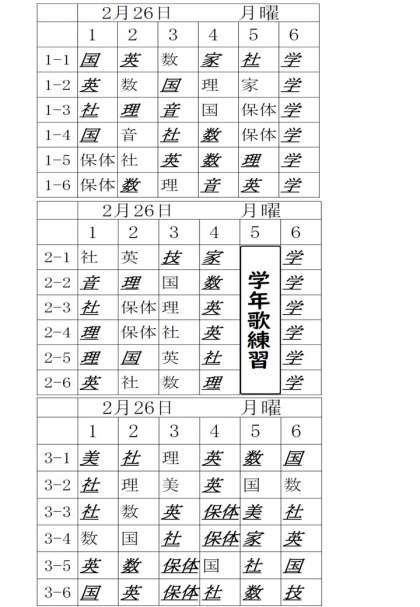 2月26日 月曜
1 2 3 4 5 6
1-1 国 英 数 家 社 学
1-2 英 数 国 理 家 学
1-3 社 理 音 国 保体 学
1-4 国 音 社 数 保体 学
1-5 保体 社 英 数 理 学
1-6 保体 数 理 音 英 学
2月26日 月曜
1 2 3 4 5 6
2-1 社 英 技 家 学
2-2 音 理 国 数 学
2-3 社 保体 理 英 学
2-4 理 保体 社 英 学
2-5 理 国 英 社 学
2-6 英 社 数 理 学
学年歌練習
2月26日 月曜
1 2 3 4 5 6
3-1 美 社 理 英 数 国
3-2 社 理 美 英 国 数
3-3 社 数 英 保体 美 社
3-4 数 国 社 保体 家 英
3-5 英 数 保体 国 社 国
3-6 国 英 保体 社 数 技